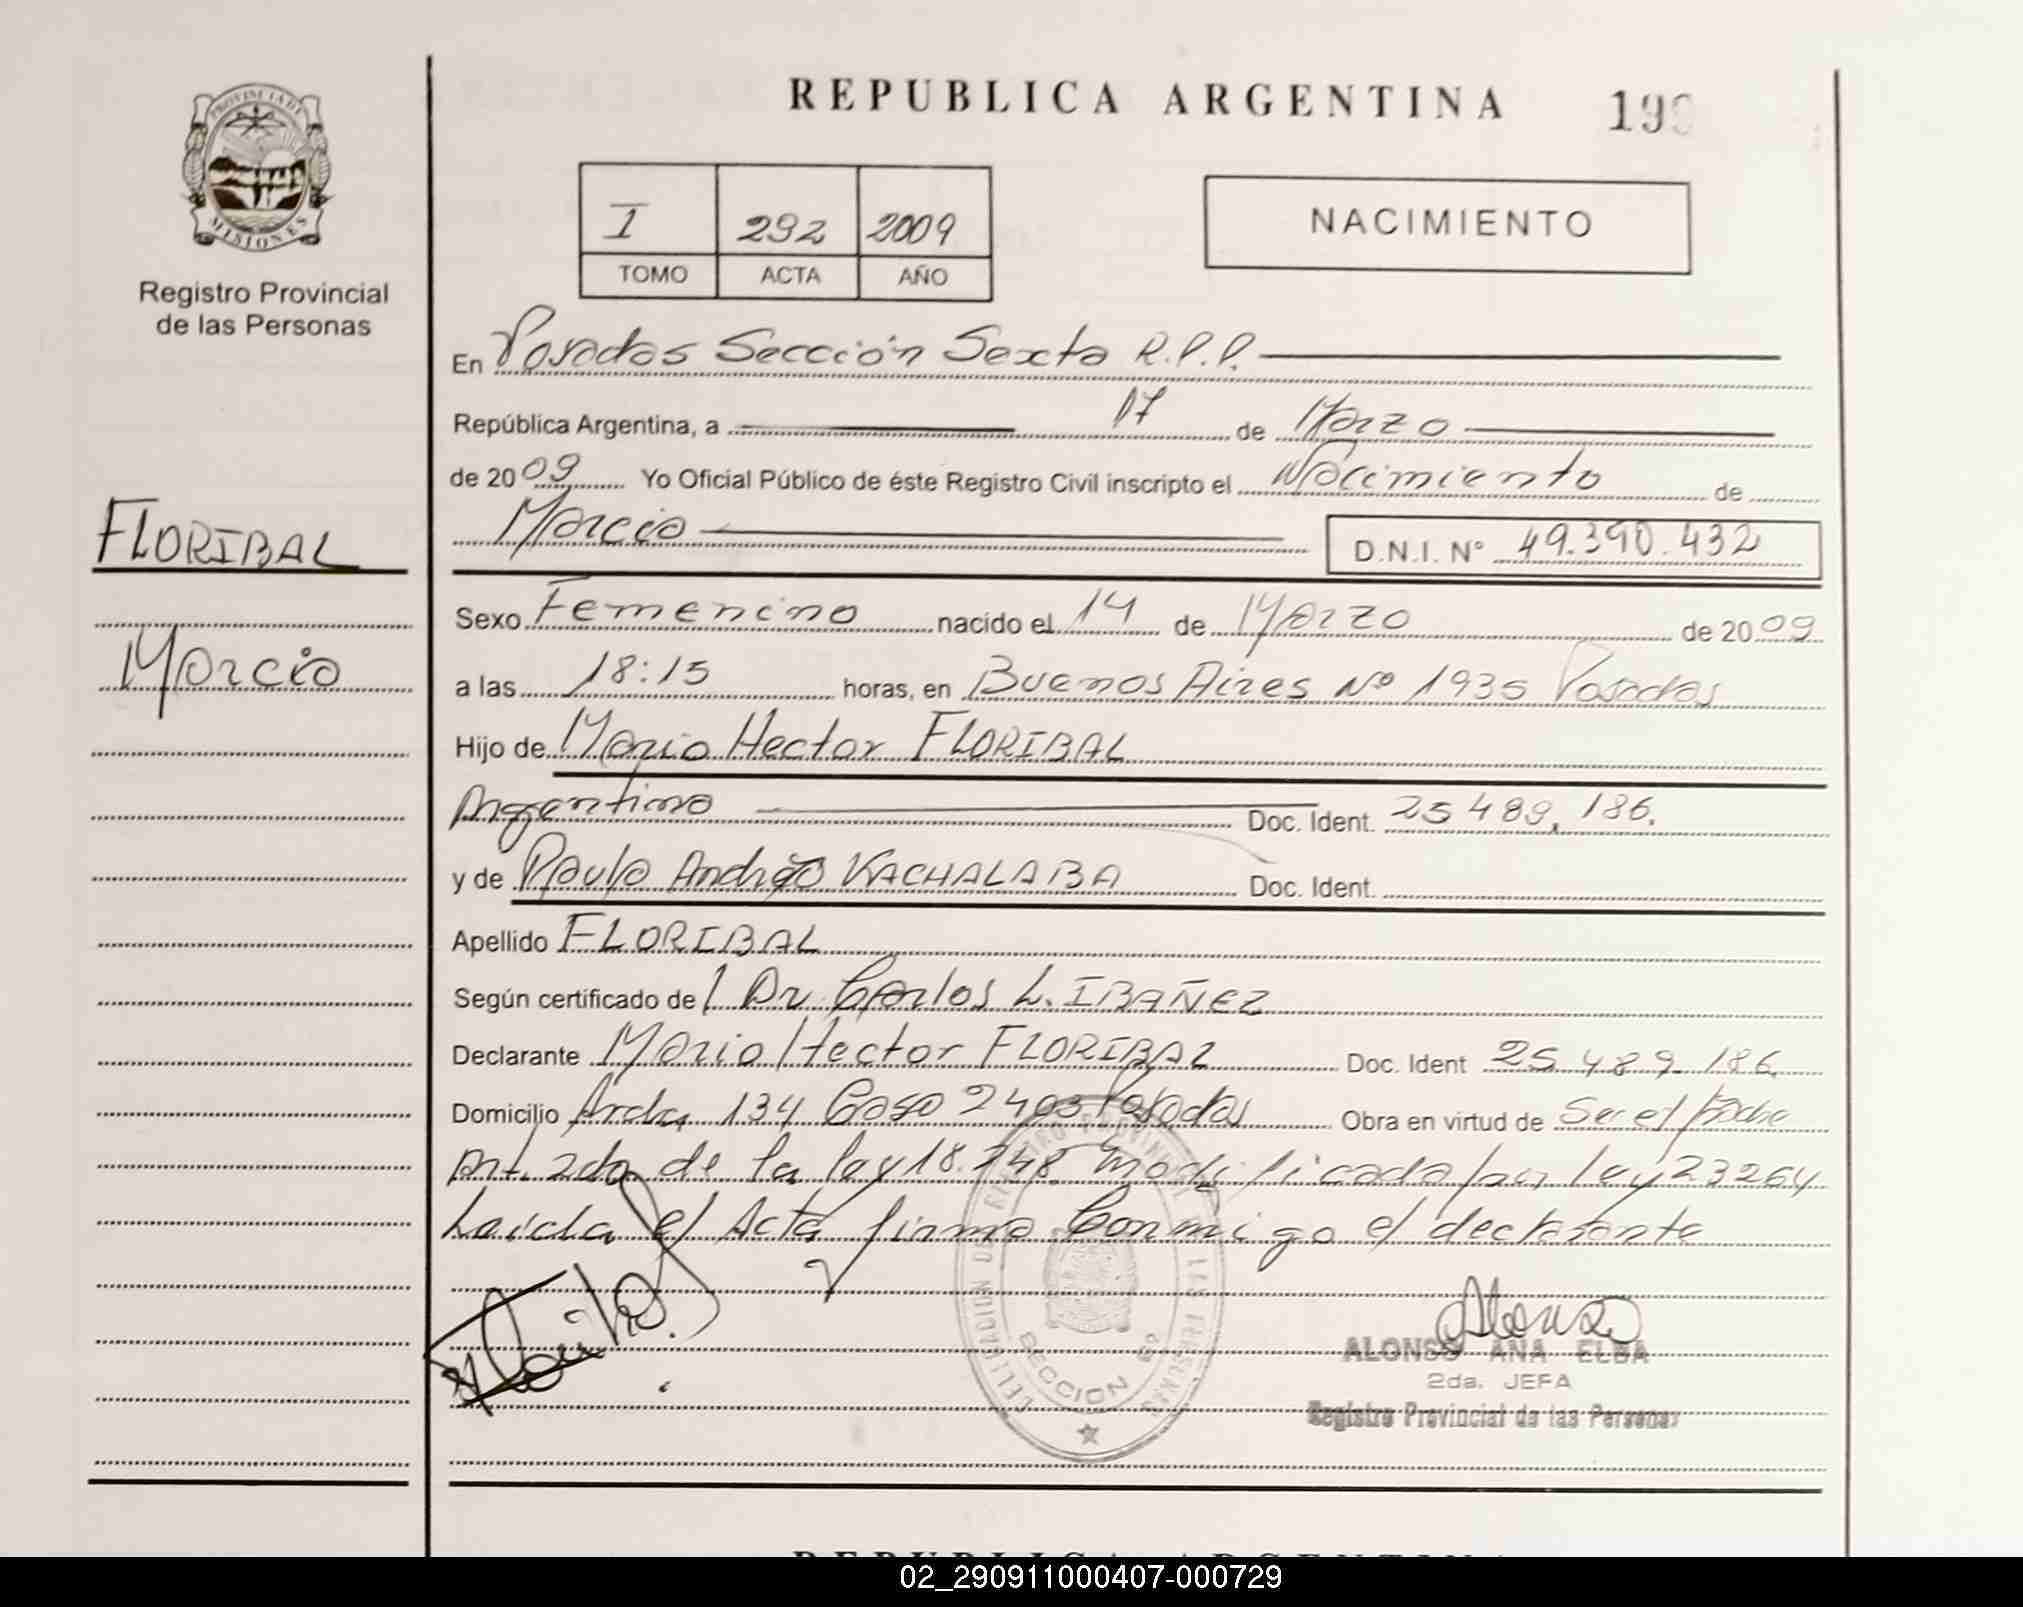 REPUBLICA ARGENTINA
PROVINCIA DE
MISIONES
Registro Provincial
de las Personas
I 292 2009
TOMO ACTA AÑO
NACIMIENTO
En Posadas Sección Sexta R.P.P.
República Argentina, a 17 de Marzo
de 2009 Yo Oficial Público de éste Registro Civil inscripto el Nacimiento de
Marcia D.N.I. Nº 49.390.432
FLORIBAL
Marcia
Sexo Femenino nacido el 14 de Marzo de 2009
a las 18:15 horas, en Buenos Aires Nº 1935 Posadas
Hijo de Mario Hector FLORIBAL
Argentino Doc. Ident. 25 489.186.
y de Paula Andrea KACHALABA Doc. Ident.
Apellido FLORIBAL
Según certificado de Dr Carlos L. IBAÑEZ
Declarante Mario Hector FLORIBAL Doc. Ident 25.489.186.
Domicilio 134 Casa 2403 Posadas Obra en virtud de Ser el Padre
Art. 2do de la Ley 18.248 modificada por Ley 23264
Leida el Acta firma Conmigo el declarante
DELEGACION DEL REGISTRO PROVINCIAL DE LAS PERSONAS
SECCION 6º
Alonso
ALONSO ANA ELBA
2da. JEFA
Registro Provincial de las Personas
REPUBLICA ARGENTINA
02_290911000407-000729